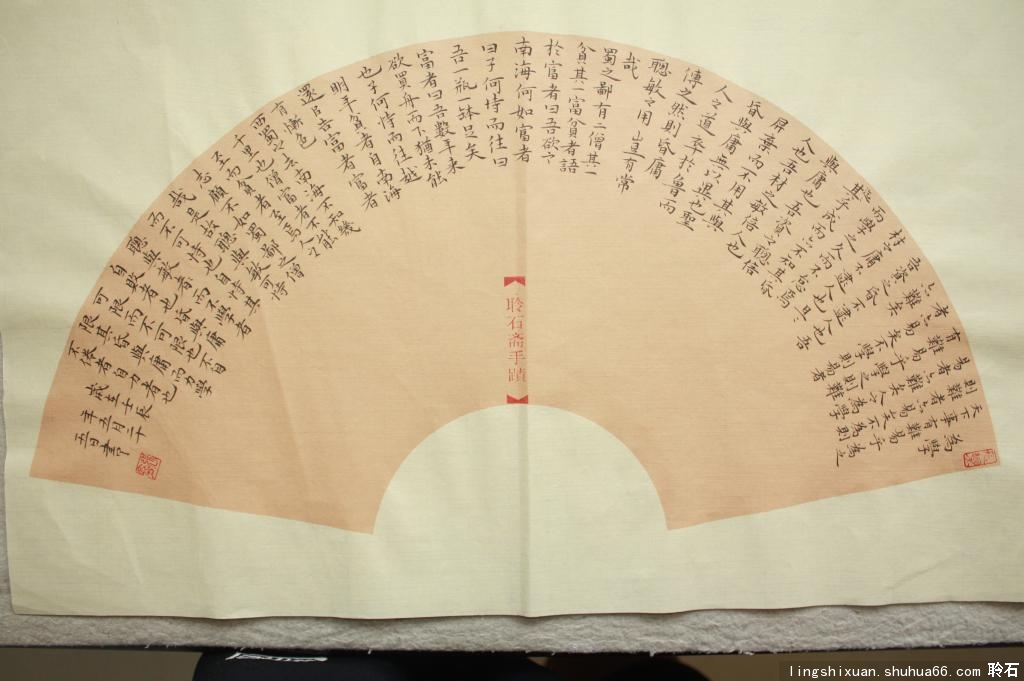 為學
天下事有難易乎為之
則難者亦易矣不為則
易者亦難矣人之為學
有難易乎學之則難
者亦易矣不學則易者
亦難矣
吾資之昏不逮人也吾
材之庸不逮人也旦旦
而學之久而不怠焉
迄乎成而亦不知其昏
與庸也吾資之聰倍
人也吾材之敏倍人也
屏棄而不用其與
昏與庸無以異也聖
人之道卒於魯而
傳之然則昏庸
聰敏之用豈有常
哉
蜀之鄙有二僧其一
貧其一富貧者語
於富者曰吾欲之
南海何如富者
曰子何恃而往曰
吾一瓶一缽足矣
富者曰吾數年來
欲買舟而下猶未能
也子何恃而往越
明年貧者自南海
還以告富者富者
有慚色
西蜀之去南海不知幾
千里也僧富者不能
至而貧者至焉人之
志顧不如蜀鄙之僧
哉是故聰與敏可恃
而不可恃也自恃其
聰與敏而不學者
自敗者也昏與庸
可限而不可限也不自
限其昏與庸而力學
不倦者自力者也
歲在壬辰
年五月二十
五日書
聆石斋手蹟
lingshixuan.shuhua66.com 聆石